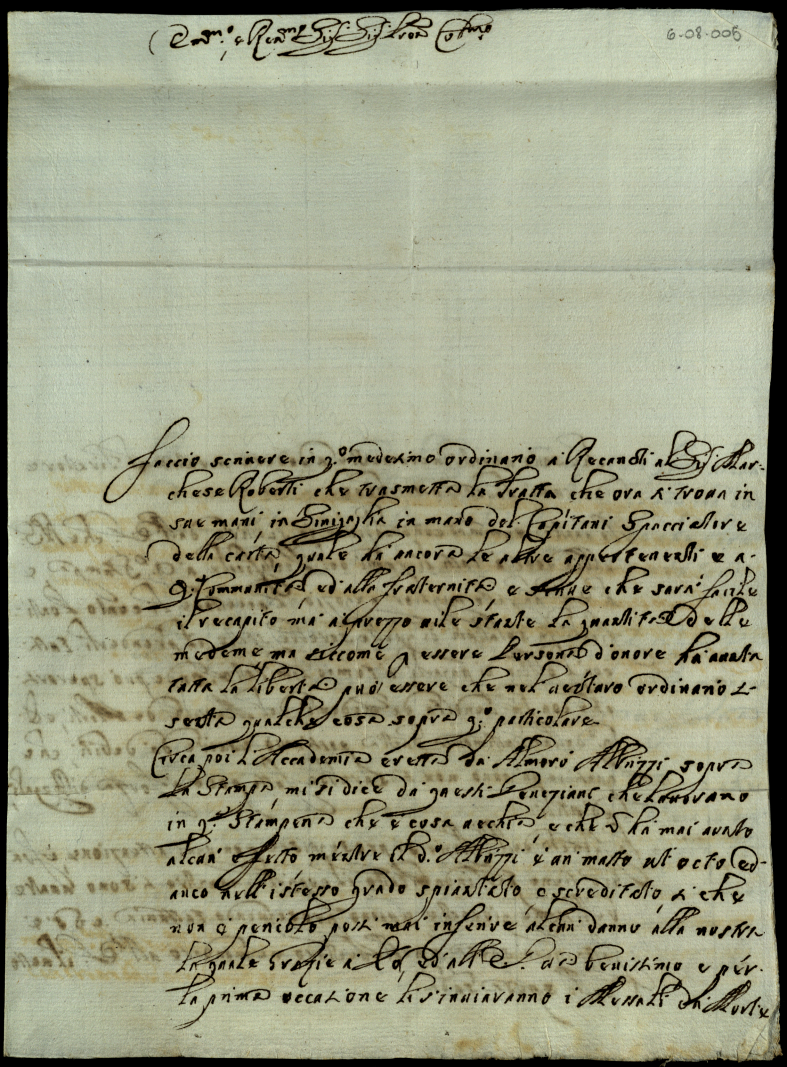 Em.mo, e Rev.mo Sig.r Sig.r Pron Col.mo
6-08-005
Faccio scrivere in q.o medesimo ordinario a Recanati al Sig.r Mar-
chese Roberti che trasmetta la Tratta che ora si trova in
sue mani in Sinigaglia in mano del Capitani Spacciatore
della carta quale ha ancora le altre appertenenti e a
q.a Communità ed alla fraternita e scrive che sarà facile
il recapito mà a prezzo vile stante la quantità delle
medeme ma siccome p essere Persona d'onore ha avuta
tutta la libertà può essere che nel venturo ordinario si
senta qualche cosa sopra q.o particolare
Circa poi l'Accademia eretta da Almorò Albrizzi sopra
la Stampa mi si dice da questi Veneziani che lavorano
in q.a Stamperia che è cosa vecchia, e che ñ hà mai avuto
alcun effetto mentre il d.o Albrizzi è un matto ut octo ed
anco nell'istesso grado spiantato e screditato si che
non è pericolo possi mai inferire alcun danno alla nostra
la quale Grazie a Dio, ed all'E. V. và benissimo e per
la prima occasione li s'inviaranno i Messali da Morti e